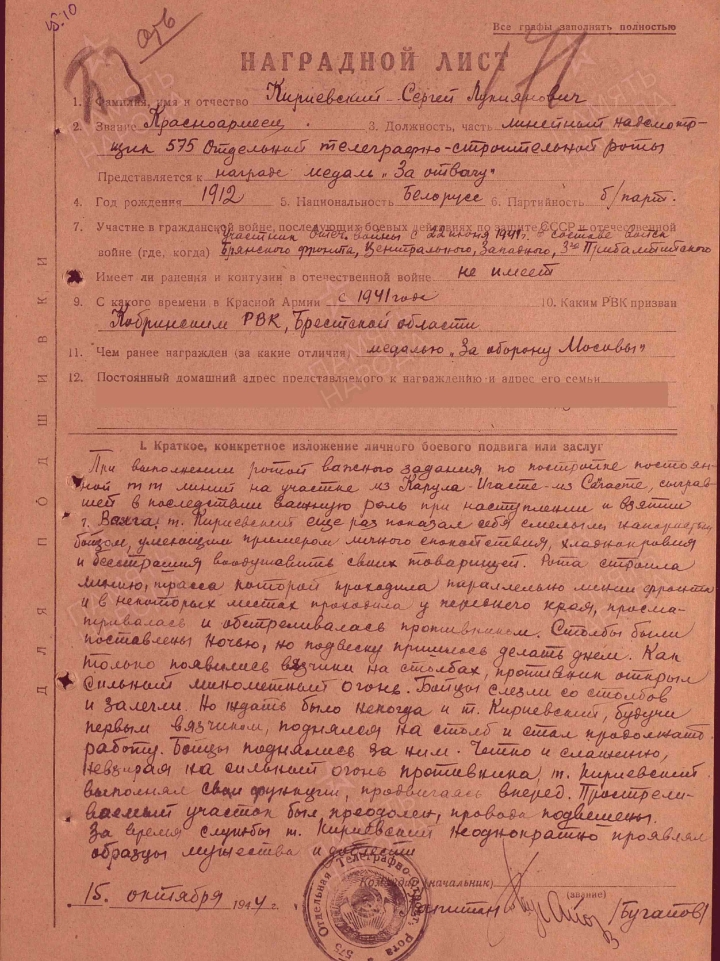 Все графы заполнять полностью
НАГРАДНОЙ ЛИСТ
1. Фамилия, имя и отчество Кириевский Сергей Лукиянович
2. Звание Красноармеец 3. Должность, часть линейный надсмотр-
щик 575 Отдельной телеграфно-строительной роты
Представляется к награде медаль „За отвагу"
4. Год рождения 1912 5. Национальность Белорусс 6. Партийность б/парт.
7. Участие в гражданской войне, последующих боевых действиях по защите СССР и отечественной
участник отеч. войны с 22 июня 1941 г. в составе войск
войне (где, когда) Брянского фронта, Центрального, Западного, 3го Прибалтийского
Имеет ли ранения и контузии в отечественной войне не имеет
9. С какого времени в Красной Армии с 1941 года 10. Каким РВК призван
Кобринским РВК, Брестской области
11. Чем ранее награжден (за какие отличия) медалью „За оборону Москвы"
12. Постоянный домашний адрес представляемого к награждению и адрес его семьи
I. Краткое, конкретное изложение личного боевого подвига или заслуг
При выполнении ротой важного задания по постройке постоян-
ной линии на участке из сыграв-
шей в последствии важную роль при наступлении и взятии
г. Валга, т. Кириевский еще раз показал себя смелым
бойцом, умеющим примером личного спокойствия, хладнокровия
и бесстрашия воодушевить своих товарищей. Рота строила
линию, трасса которой проходила параллельно линии фронта
и в некоторых местах проходила у переднего края, просма-
тривалась и обстреливалась противником. Столбы были
поставлены ночью, но подвеску пришлось делать днем. Как
только появились вязчики на столбах, противник открыл
сильный минометный огонь. Бойцы слезли со столбов
и залегли. Но ждать было некогда и т. Кириевский, будучи
первым вязчиком, поднялся на столб и стал продолжать
работу. Бойцы поднялись за ним. Четко и слаженно,
невзирая на сильный огонь противника, т. Кириевский
выполнял свои функции, продвигаясь вперед. Прострели-
ваемый участок был преодолен, провода подвешены.
За время службы т. Кириевский неоднократно проявлял
образцы мужества и доблести
Командир (начальник)
(звание)
15. октября 1944 г. Капитан /Бугапов/
575 Отдельная Телеграфно-Строит. Рота
ДЛЯ ПОДШИВКИ